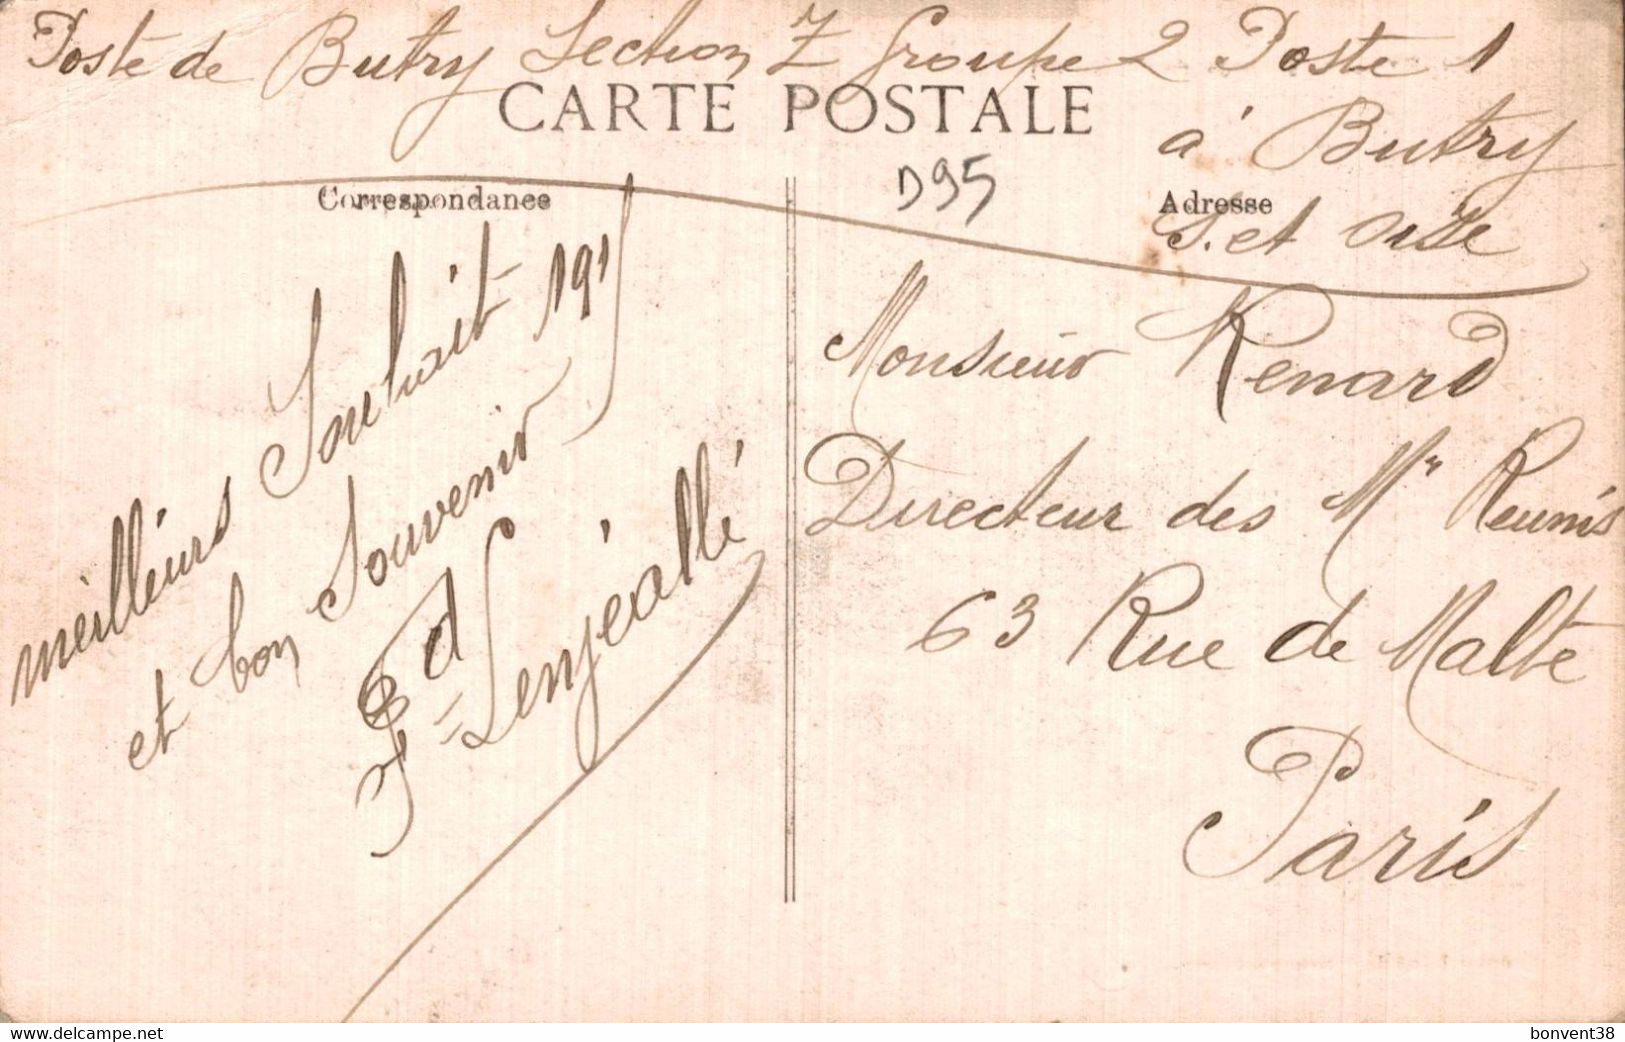 Poste de Butry Section Z Groupe 2 Poste 1
à Butry
S. et Oise
CARTE POSTALE
D95
Correspondance
Adresse
meilleurs Souhait 191
et bon Souvenir
Lenjeallé
Monsieur Renard
Directeur des Mn Reunis
63 Rue de Malte
Paris
www.delcampe.net
bonvent38